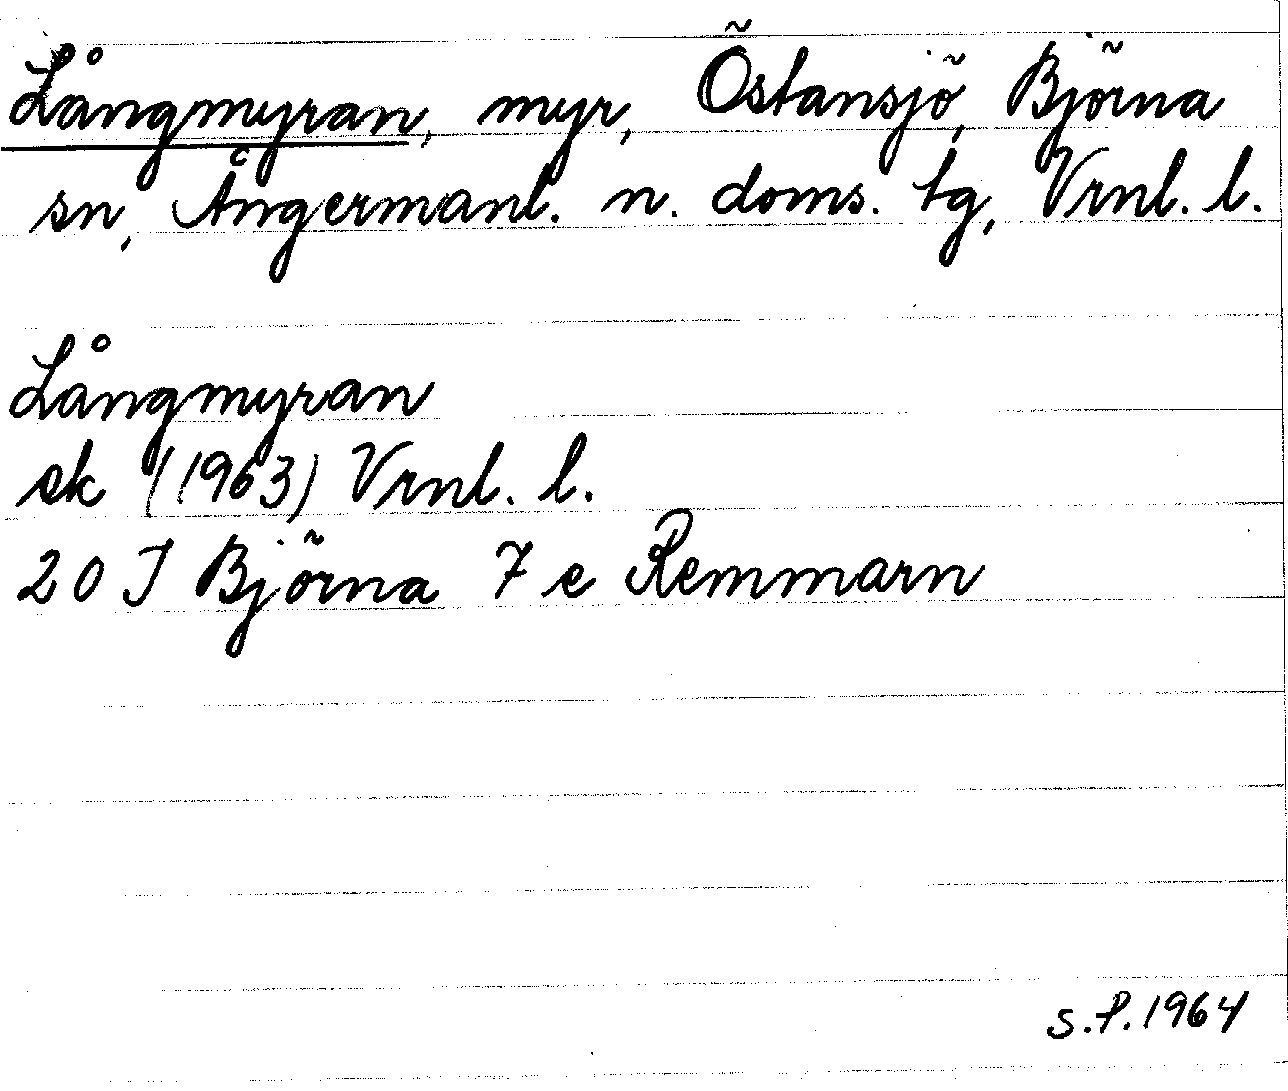 Långmyran, myr, Östansjö, Björna
sn, Ångermanl. n. doms. tg, Vrnl. l.
Långmyran
ek (1963) Vrnl. l.
20 J Björna 7 e Remmarn
S.P.1964